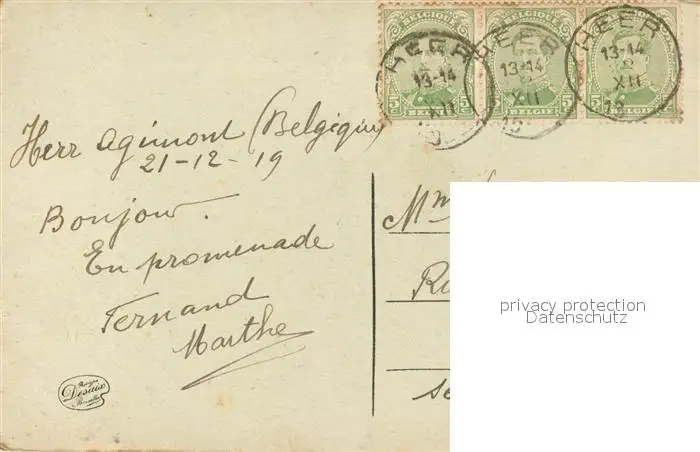 BELGIQUE BELGIQUE BELGIQUE
HEER HEER HEER
13-14 13-14 13-14
XII XII XII
19
5 5 5 5
BELGIE BELGIE BELGIE
Herr Agimont (Belgique)
21-12-19
Bonjour.
En promenade
Fernand
Marthe
Desaix
Mme
privacy protection
Datenschutz